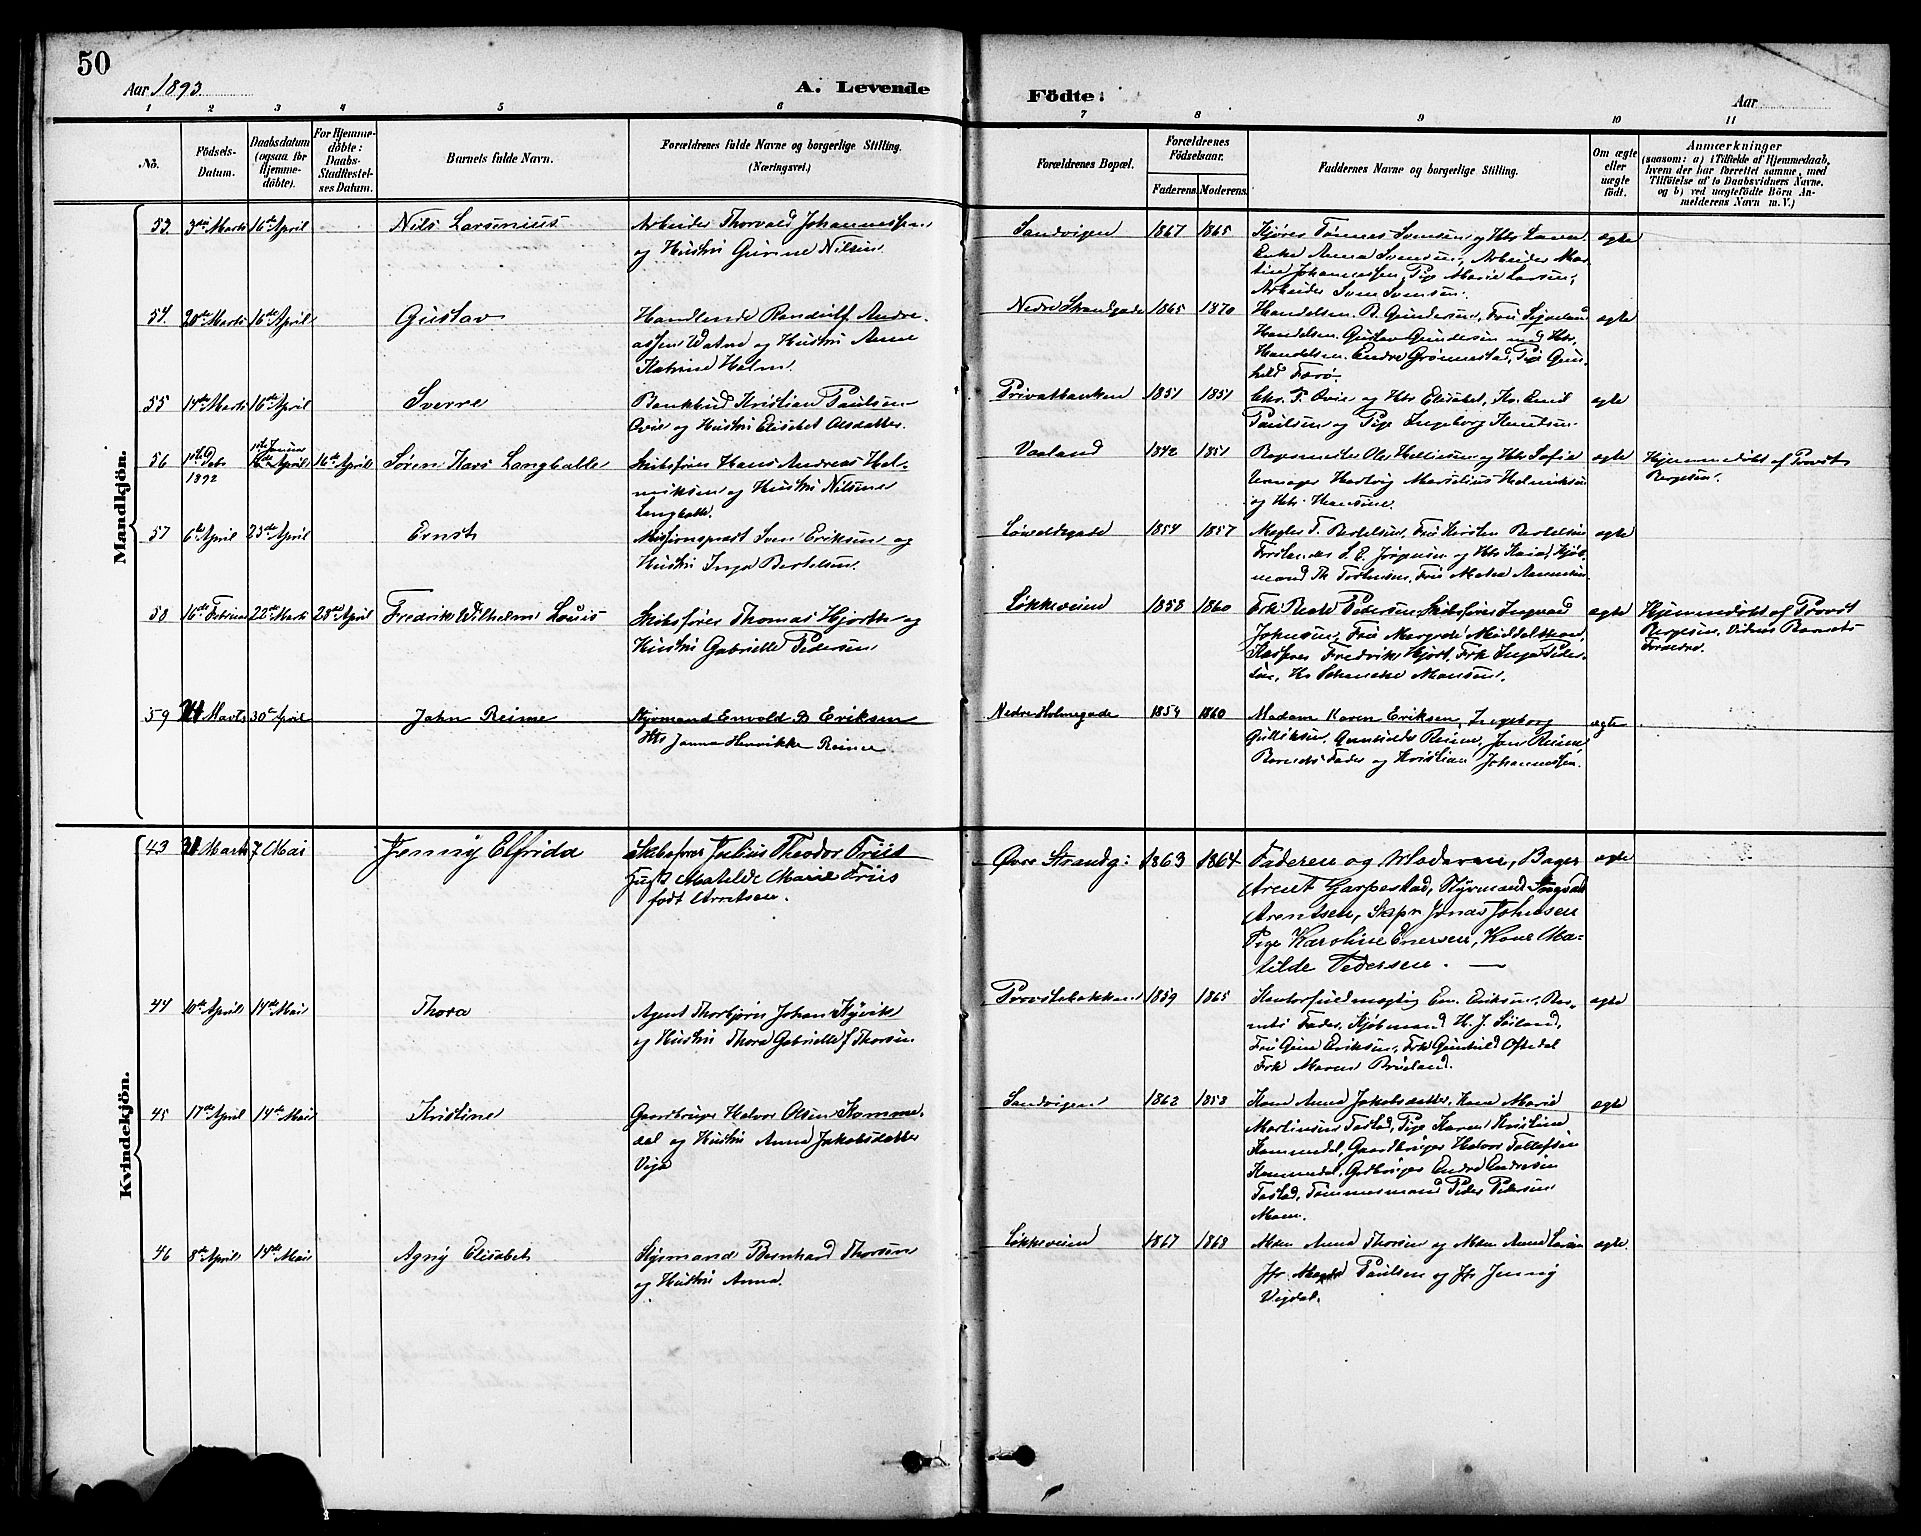 50
Aar 1893.
A. Levende
Födte:
Aar
1 2 3 4 5 6 7 8 9 10 11
No.
Födsels-
Datum.
Daabsdatum
(ogsaa for
Hjemme-
döbte).
For Hjemme-
döbte:
Daabs-
Stadfæstel-
ses Datum.
Barnets fulde Navn.
Forældrenes fulde Navne og borgerlige Stilling.
(Næringsvei.)
Forældrenes Bopæl.
Forældrenes
Födselsaar.
Faderens. Moderens.
Faddernes Navne og borgerlige Stilling.
Om ægte
eller
uægte
födt.
Anmærkninger
(saasom: a) i Tilfælde af Hjemmedaab,
hvem der har forrettet samme, med
Tilföielse af to Daabsvidners Navne.
og b) ved uægtefödte Börn An-
melderens Navn m. V.)
Mandkjön.
53. 3die Marts 16de April Nils Larsenius Arbeider Thorvald Johannessen
og Hustru Gurine Nilsen.
Sandvigen 1867 1865 Kjører Tønnes Svensen og Hts Laura
Enke Anna Svensen, Arbeider Mar-
tin Johannessen, Pige Marie Larsen,
Arbeider Sven Svensen.
ægte
54. 20de Marts 16de April Gustav Handlende Randulf Andre-
assen Watne og Hustru Anne
Katrine Holm.
Nedre Strandgade 1865 1870 Handelsm. B. Gundersen, Fru
Handelsm. Gustav Gundersen med Hts,
Handelsm. Endre Grønnestad, Pige Gun-
hild Førø.
ægte
55 14de Marts 16de April Sverre Bankbud Kristian Paulsen
Qvie og Hustru Elisebet Olsdatter.
Privatbanken 1851 1851 Chr. P. Qvie og Hts Elisabet, Hr. Emil
Paulsen og Pige Ingeborg Knutsen.
ægte
56 1892 16de April Søren Kaos Langballe Skibsfører Hans Andreas Hel-
miksen og Hustru Nilsine
Langballe.
Vaaland 1842 1851 Ole Helliesen og Hts Sofie
Hartvig Marselius Helmiksen
og Hts Hansine.
ægte
Hjemmedøbt af Provst
Bergesen.
57 6te April 23de April Ernst Missionsprest Sven Eriksen og
Hustru Inga Bertelsen.
Løvoldsgade 1854 1857 Megler T. Bertelsen, Fru Kirsten Bertelsen
Forstander L. E. Jørgensen og Hts Kaia, Kjøb-
mand Th. Torkensen, Fru Metea
ægte
58 16de Februar 22de Marts 28de April Fredrik Wilhelm Louis Skibsfører Thomas Hjorth og
Hustru Gabrielle Pedersen
Løkkeveien 1858 1860 Frk. Beate Pedersen, Skibsfører Ingvald
Johnsen, Fru Margrete Middelthon,
Kasserer Fredrik Hjort, Frk Inga Peder-
sen, Hr Monsen.
ægte
Hjemmedøbt af Provst
Bergesen. Vidner Barnets
Forældre.
59 Marts 30te April John Reime Styrmand Enevold B Eriksen
Hts Janna Henrikke Reime
Nedre Holmegade 1854 1860 Madam Karen Eriksen, Ingeborg
Gulliksen, Gunhilde Reime, Jon Reime
Barnets Fader og Kristian Johannessen.
ægte
Kvindekjön.
43 31 Marts 7 Mai Jenny Elfrida Skibsfører Julius Theodor Friis
Hust Matilde Marie Friis
født Arntsen.
Øvre Strandg: 1863 1864 Faderen og Moderen, Bager
Arent Garpestad, Styrmand Ingvald
Arentsen, Skpr Jonas Johnsen
Pige Karoline Enersen, Kone Ma-
tilde Pedersen. —
ægte
44 10de April 14de Mai Thora Agent Thorbjørn Johan Kyvik
og Hustru Thora Gabrielle f Thorsen
Provstebakken 1859 1865 Kontorfuldmægtig Em. Eriksen, Bar-
nets Fader, Kjøbmand H. J. Søiland,
Fru Gine Eriksen, Frk Gunhild Oftedal
Frk Maren Brueland.
ægte
45 17de April 14de Mai Kristine Gaardbruger Halvor Olsen Komme-
dal og Hustru Anna Jakobsdatter
Viga
Sandvigen 1862 1858 Kone Anna Jakobsdatter, Kone Marie
Martinsen Tastad, Pige Karen Kristine
Kommedal, Gaardbruger Halvor Tollefsen
Kommedal, Grdbruger Endre Endresen
Tastad, Tømmermand Peder Pedersen
Moen.
ægte
46 8de April 14de Mai Agny Elisabet Styrmand Bernhard Thorsen
og Hustru Anna.
Løkkeveien 1867 1868 Mdm Anna Thorsen og Mdm Anna Larsen
Jfr. Paulsen og Jfr Jenny
Vigdal.
ægte.